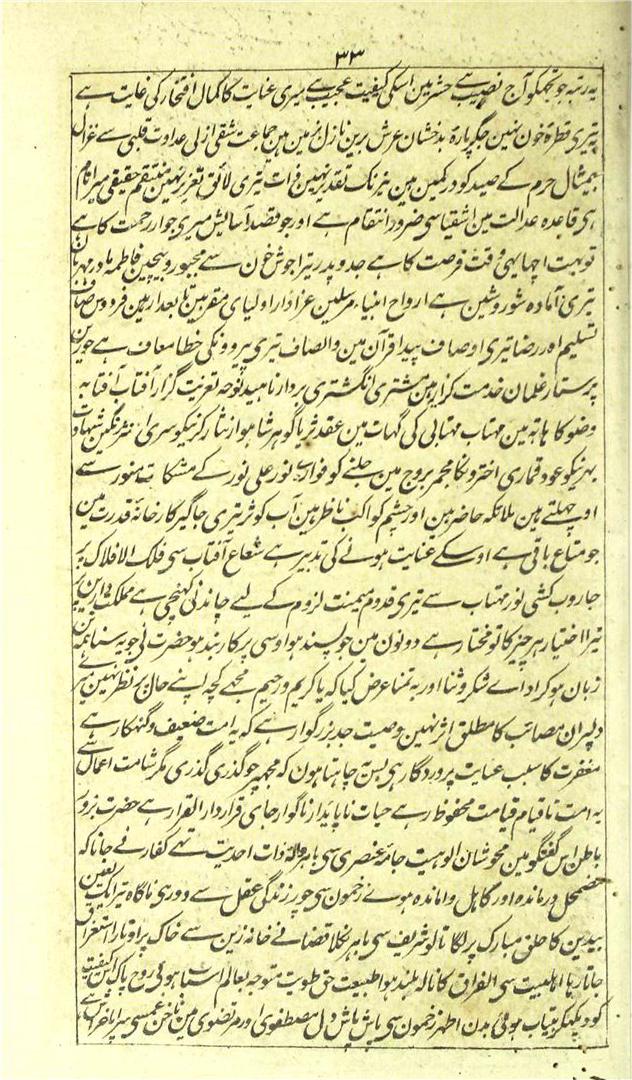 ۳۳
یہ رتبہ جو تجھکو آج نصیب ہے حشر مین اسکی کیفیت عجیب ہے میری عنایت کا کمال افتخار کی غایت ہے
تیری قطرۂ خون نہین جگر پارۂ بدخشان عرش برین نازل بزمین ہین جماعت شقی ازلی عداوت قلبی سے غزال
بیمثال حرم کے صید کو درکمین ہین نیرنگ تقدیر نہین ذات تیری لائق تعزیر نہین منتقم حقیقی میرا نام
ہی قاعدہ عدالت مین اشقیا سی ضرور انتقام ہے اور جو قصد آسایش میری جوار رحمت کا ہے
تو بہت اچھا یہی وقت فرصت کا ہے جد و پدر تیرا جوش خون سے مجبور و بیچین فاطمہ مادر مہربان
تیری آمادہ شور و شین ہے ارواح انبیاء مرسلین عزادار اولیای مقربین تابعدار ہین فردوس
تسلیم اور رضا تیری اوصاف پیدا قرآن مین و الصاف تیری پیروونکی خطا معاف ہے حورین
پرستار غلمان خدمت گزار ہین مشتری انگشتری بردار ناہید نوحہ تعزیت گزار آفتاب آفتابہ
وضو کا ہاتہ مین مہتاب مہتابی کی گہات مین عقد ثریا گوہر شاہوار نثار کرنیکو سری
بہرنیکو عود قماری اخترونکا مجمر بروج مین جلنے کو فوارے نور علی نور کے مشکات منور سے
اوچہلتے ہین ملائکہ حاضر ہین اور چشم کواکب ناظر ہین آب کوثر تیری جاگیر کارخانۂ قدرت مین
جو متاع باقی ہے اوسکے عنایت ہونے کی تدبیر ہے شعاع آفتاب سی فلک الافلاک پر
جاروب کشی نور مہتاب سے تیری قدوم میمنت لزوم کے لیے چاندنی کہنچی ہے مملکت دارین پر
تیرا اختیار ہر چیز کا تو مختار ہے دونون مین جو پسند ہو اوسی پر کاربند ہو حضرت نی جو یہ سنا
زبان ہو کر ادائے شکر و ثنا اور بہ تمنا عرض کیا کہ یا کریم و رحیم مجہے کچہ اپنے حال پر نظر نہین میرے
دلپر ان مصائب کا مطلق اثر نہین وصیت جد بزرگوار ہے کہ یہ امت ضعیف و گنہکار ہے
مغفرت کا سبب عنایت پروردگار ہی بس چاہتا ہون کہ مجہپہ جو گذری گذری مگر شامت اعمال سے
یہ امت تا قیام قیامت محفوظ رہے حیات ناپایدار ناگوار جای قرار دار القرار ہے حضرت بزور
باطن اس گفتگو مین محو شان الوہیت جامۂ عنصری سی باہر والۂ ذات احدیت تہے کفار نے جانا کہ
مضمحل درماندہ اور گاہل و اماندہ ہوئے زخمون سی چور زندگی عقل سے دور ہی ناگاہ تیر ایک لعین
بیدین کا حلق مبارک پر لگا تالو شریف سی باہر نکلا قضا نے خانہ زین سے خاک پر اوتارا استغراق
جاتا رہا اہلبیت سی الفراق کا نالہ بلند ہوا طبیعت حق طویت متوجہ بعالم اسنا ہوئی روح پاک اس کیفیت
کو دیکہکر بیتاب ہوئی بدن اطہر زخمون سی پاش پاش دل مصطفوی اور مرتضوی مین ناخن غم سی سراپا خراش ہے